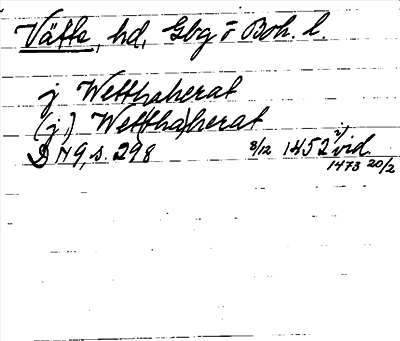 Vätte, hd, Gbg o Boh. l.
j Wetthaherat
(j) Wet(tha)herat
D N 9, s. 298 8/12 1452 2) vid.
1473 20/2